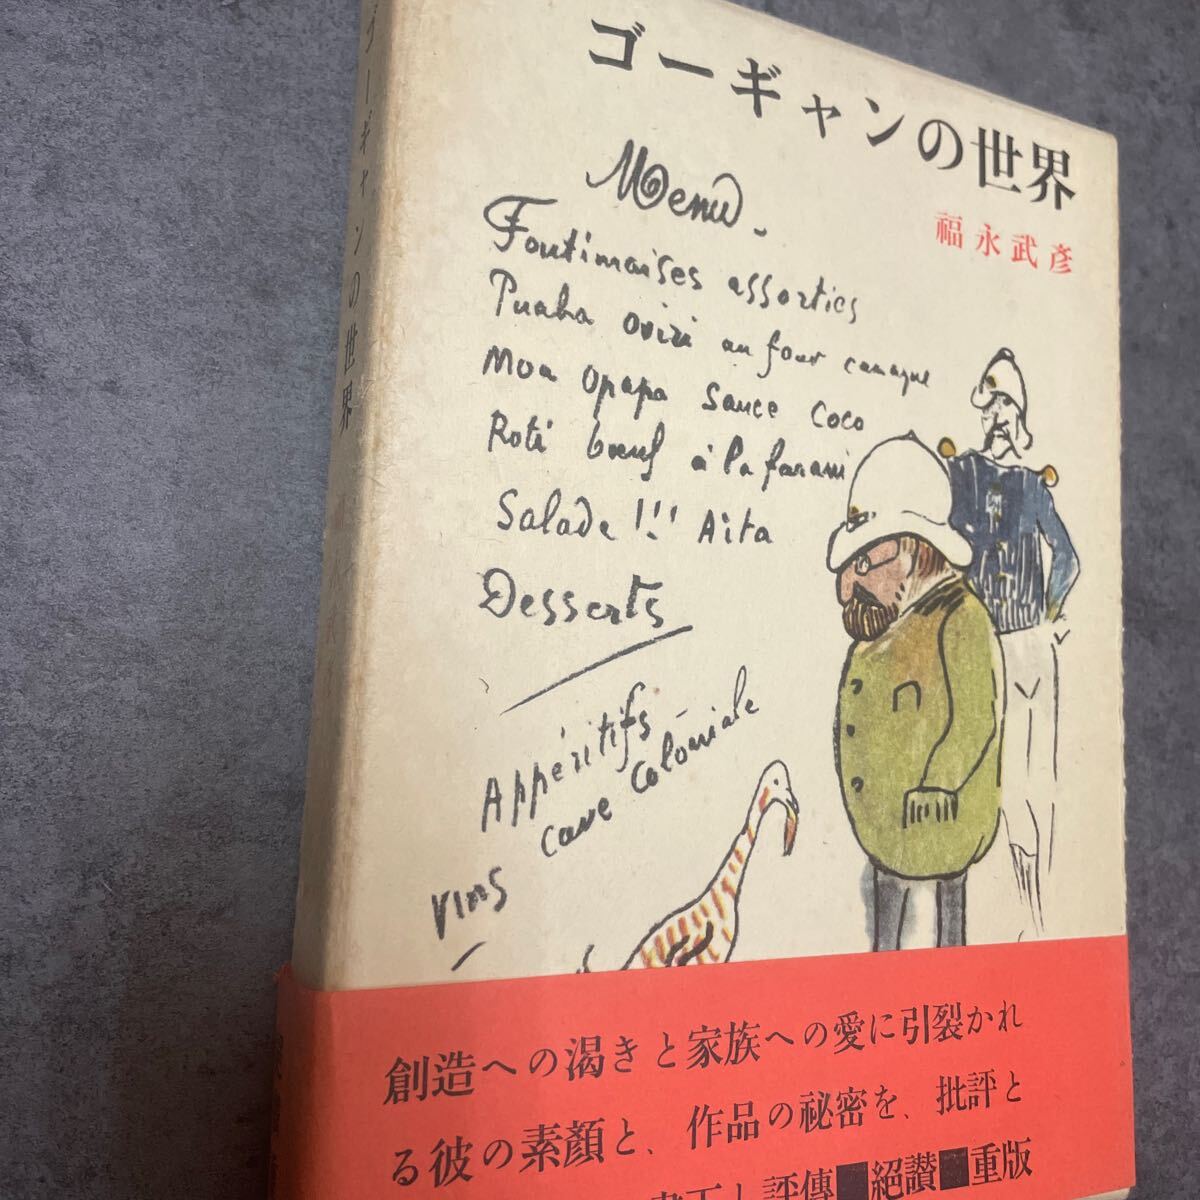 ゴーギャンの世界
福永武彦
Menu.
Foutimaises assorties
Puaka oviri au four canaque
Moa opapa Sauce Coco
Roti bœuf à la farani
Salade !!! Aita
Desserts
Appéritifs
Cave Coloniale
Vins
創造への渇きと家族への愛に引裂かれ
る彼の素顔と、作品の秘密を、批評と
書下し評傳■絕讃■重版
ゴーギャンの世界